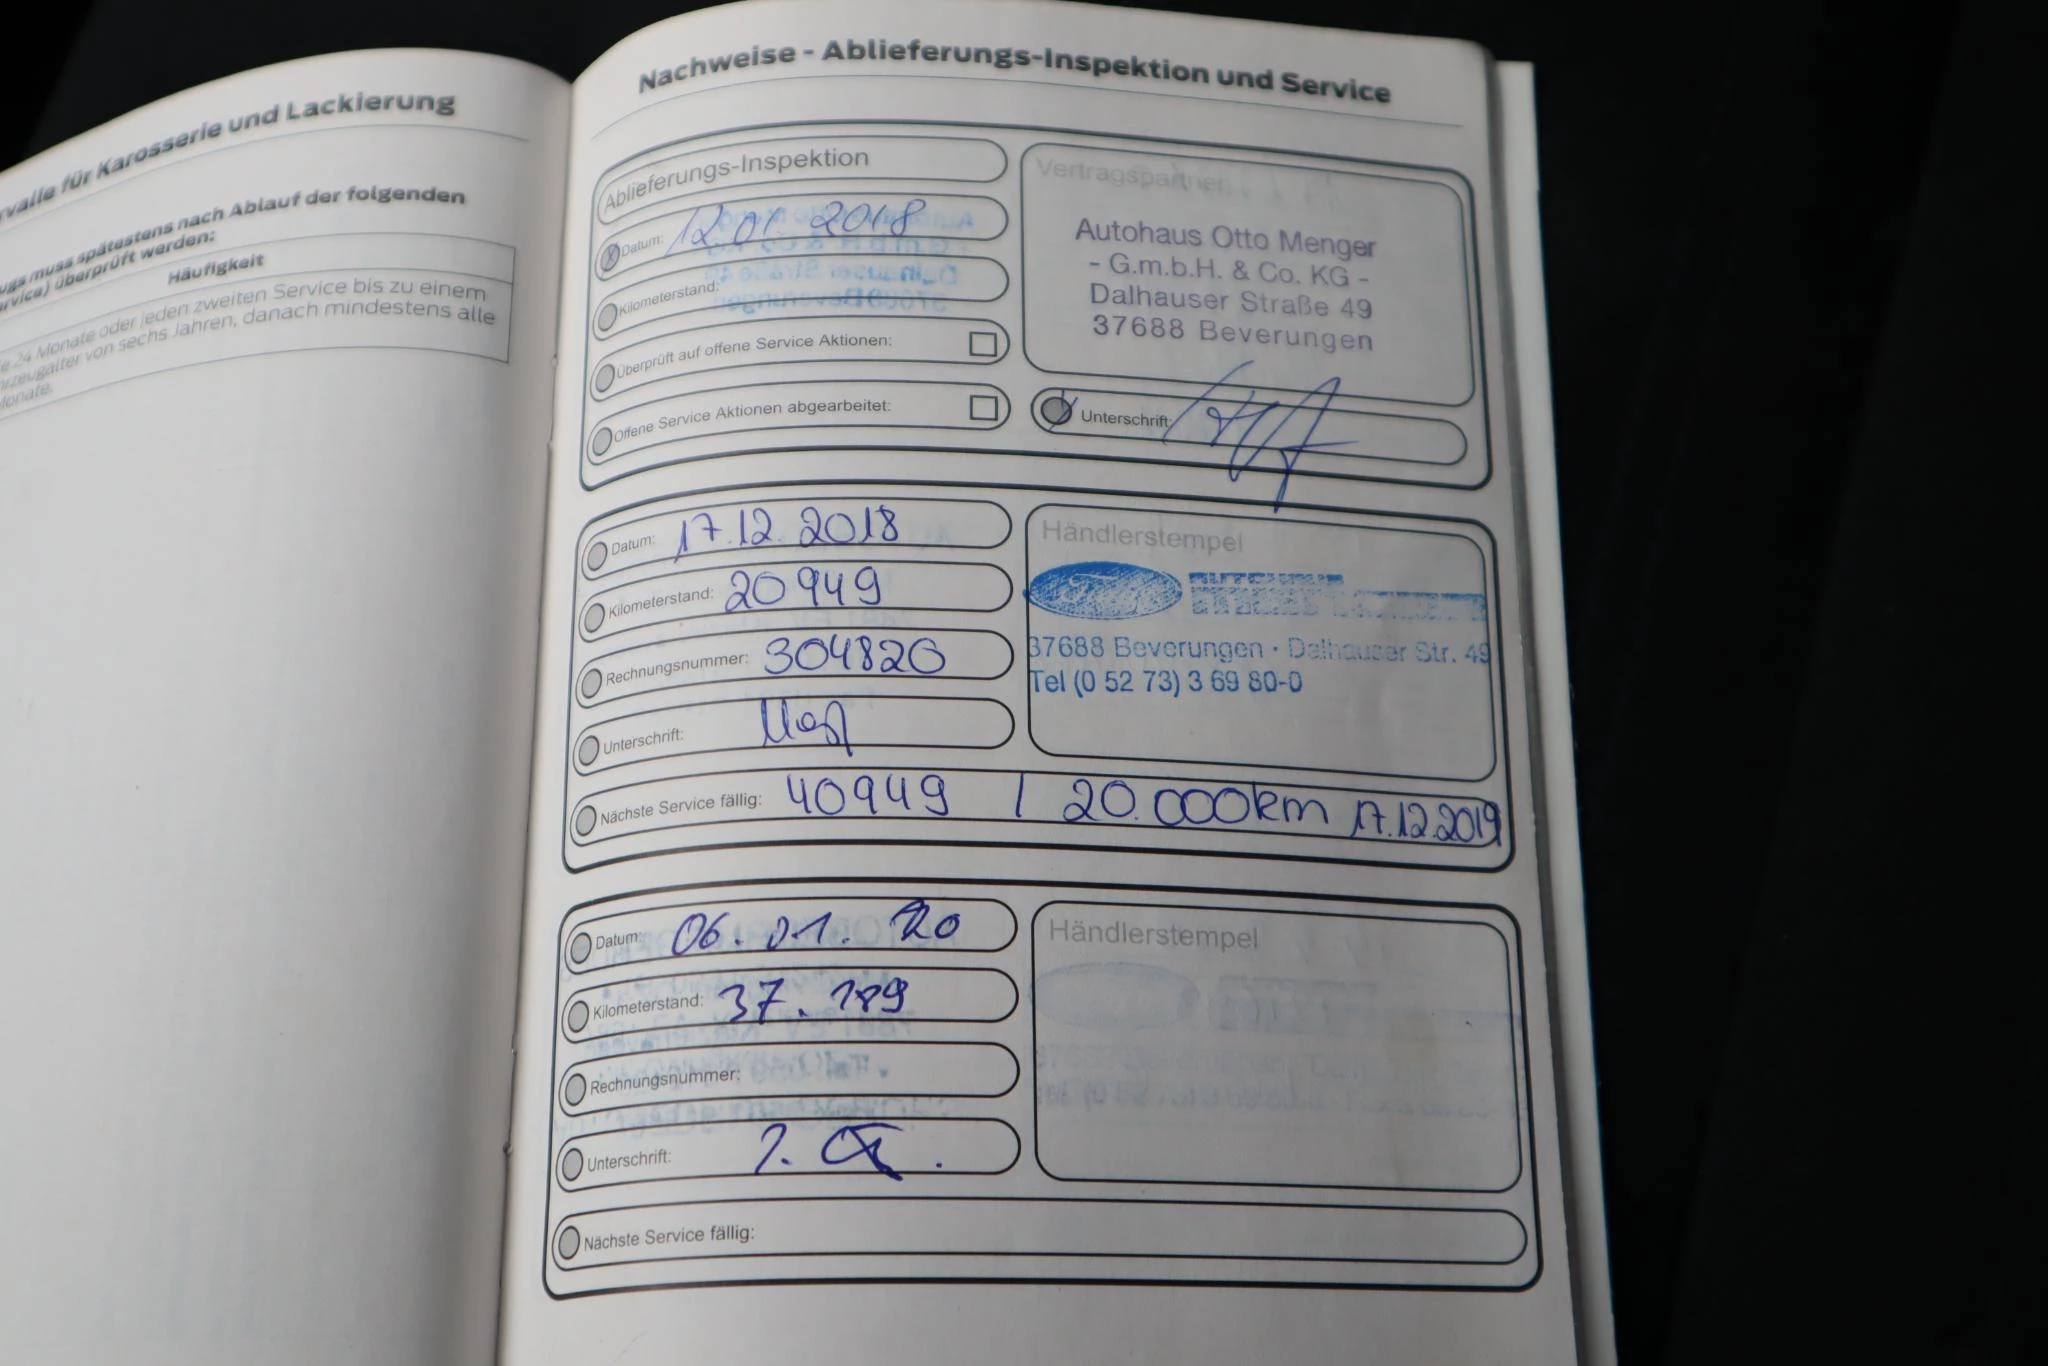 rvalle für Karosserie und Lackierung
ugs muss spätestens nach Ablauf der folgenden
rvice) überprüft werden:
Häufigkeit
e 24 Monate oder jeden zweiten Service bis zu einem
rzeugalter von sechs Jahren, danach mindestens alle
Monate.
Nachweise - Ablieferungs-Inspektion und Service
Ablieferungs-Inspektion
Datum: 12.01.2018
Kilometerstand:
Überprüft auf offene Service Aktionen:
Offene Service Aktionen abgearbeitet:
Vertragspartner
Autohaus Otto Menger
- G.m.b.H. & Co. KG -
Dalhauser Straße 49
37688 Beverungen
Unterschrift:
Datum: 17.12.2018
Kilometerstand: 20949
Rechnungsnummer: 304820
Unterschrift:
Händlerstempel
Ford
37688 Beverungen · Dalhauser Str. 49
Tel (0 52 73) 3 69 80-0
Nächste Service fällig: 40949 / 20.000km 17.12.2019
Datum: 06.01.20
Kilometerstand: 37.189
Rechnungsnummer:
Unterschrift:
Händlerstempel
Nächste Service fällig: